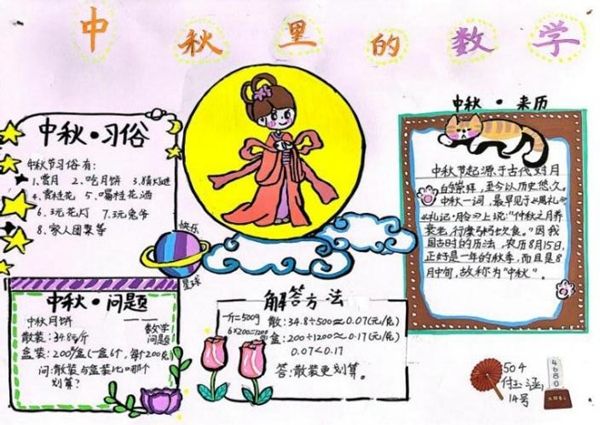 中秋里的数学
中秋·习俗
中秋节习俗有:
1.赏月 2.吃月饼 3.猜灯谜
4.赏桂花 5.喝桂花酒
6.玩花灯 7.玩兔爷
8.家人团聚等
快乐
星球
中秋·来历
中秋节起源于古代对月
的崇拜,至今以历史悠久。
中秋一词,最早见于《周礼》
《礼记·月令》上说:"仲秋之月养
衰老,行糜粥饮食。"因我
国古时的历法,农历8月15日,
正好是一年的秋季,而且是8
月中旬,故称为"中秋"。
中秋·问题
中秋月饼
数学
问题
散装:34.8元/斤
盒装:200/盒(一盒6个,每个200克)
问:散装与盒装比,哪个
划算?
解答方法
一斤=500g
6×200=1200
散:34.8÷500≈0.07(元/克)
盒:200÷1200≈0.17(元/克)
0.07<0.17
答:散装更划算。
504
14号